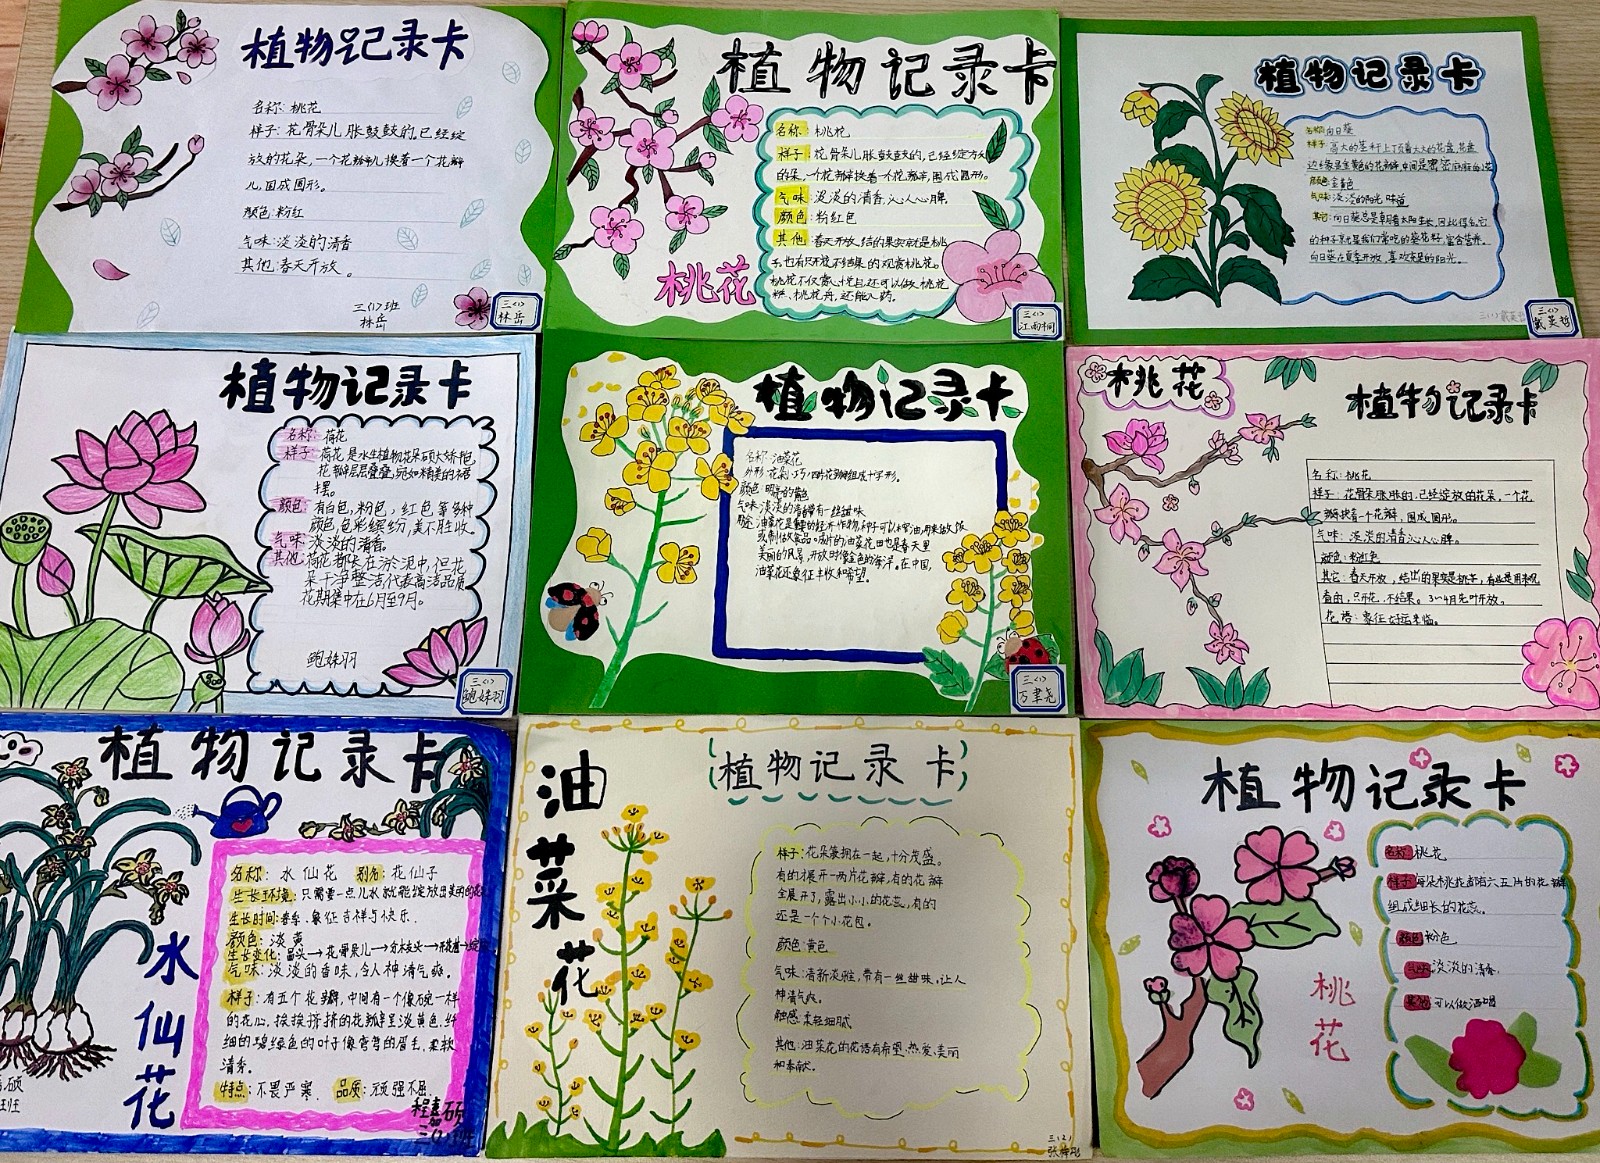 植物记录卡
名称：桃花
样子：花骨朵儿胀鼓鼓的，已经绽
放的花朵，一个花瓣儿挨着一个花瓣
儿，围成圆形。
颜色：粉红
气味：淡淡的清香
其他：春天开放。
三(1)班
林岳
三(1)
林岳
植物记录卡
名称：桃花
样子：花骨朵儿胀鼓鼓的，已经绽放
的朵，一个花瓣挨着一个花瓣，围成圆形。
气味：淡淡的清香，沁人心脾
颜色：粉红色
其他：春天开放，结的果实就是桃
子，也有只开花不结果的观赏桃花。
桃花不仅赏心悦目，还可以做桃花
桃花舟，还能入药。
桃花
三(1)
江雨桐
植物记录卡
名称：向日葵
样子：高大的茎秆上顶着大大的花盘，花盘
边缘是金黄色的花瓣，中间是密密麻麻的
颜色：金黄色
气味：淡淡的阳光味道
其它：向日葵总是朝着太阳生长，因此得名，它
的种子就是我们常吃的葵花籽，富含营养。
向日葵在夏季开放，喜欢充足的阳光。
三(1)戴英哲
三(1)
戴英哲
植物记录卡
名称：荷花
样子：荷花是水生植物，花朵硕大娇艳，
花瓣层层叠叠，宛如精美的裙
摆。
颜色：有白色，粉色，红色等多种
颜色，色彩缤纷，美不胜收。
气味：淡淡的清香。
其他：荷花都长在淤泥中，但花
朵干净整洁代表高洁品质
花期集中在6月至9月。
鲍姝羽
三(1)
鲍姝羽
植物记录卡
名称：油菜花
外形：花朵小巧，四片花瓣组成十字形。
颜色：明亮的黄色
气味：淡淡的清香带有一丝甜味
用途：油菜花是重要的经济作物，种子可以榨油，用来做饭
或制做食品。成片的油菜花田也是春天里
美丽的风景，开放时像金色的海洋。在中国，
油菜花还象征丰收和希望。
三(1)
万聿尧
桃花
植物记录卡
名称：桃花
样子：花骨朵胀胀的，已经绽放的花朵，一个花
瓣挨着一个花瓣，围成圆形。
气味：淡淡的清香沁人心脾。
颜色：粉红色
其它：春天开放，结出的果实是桃子，有些是用来观
赏的，只开花，不结果。3~4月先叶开放。
花语：象征好运来临。
植物记录卡
名称：水仙花 别名：花仙子
生长环境：只需要一点儿水就能绽放出美丽的花
生长时间：春季，象征吉祥与快乐。
颜色：淡黄
生长变化：冒头→花骨朵儿→分枝头→开花
气味：淡淡的香味，令人神清气爽。
样子：有五个花瓣，中间有一个像碗一样
的花心，挨挨挤挤的花瓣呈淡黄色，纤
细的碧绿色的叶子像弯弯的眉毛，柔软
清秀。
特点：不畏严寒 品质：顽强不屈
水仙花
程嘉硕
三(2)班
油菜花
植物记录卡
样子：花朵簇拥在一起，十分茂盛。
有的才展开一两片花瓣，有的花瓣
全展开了，露出小小的花蕊，有的
还是一个个小花包。
颜色：黄色
气味：清新淡雅，带有一丝甜味，让人
神清气爽。
触感：柔轻细腻
其他：油菜花的花语有希望、热爱、美丽
和奉献。
三(2)
植物记录卡
名称：桃花
样子：每朵桃花都有六五片的花瓣
组成细长的花蕊。
颜色：粉色
气味：淡淡的清香。
其他：可以做酒喝
桃花